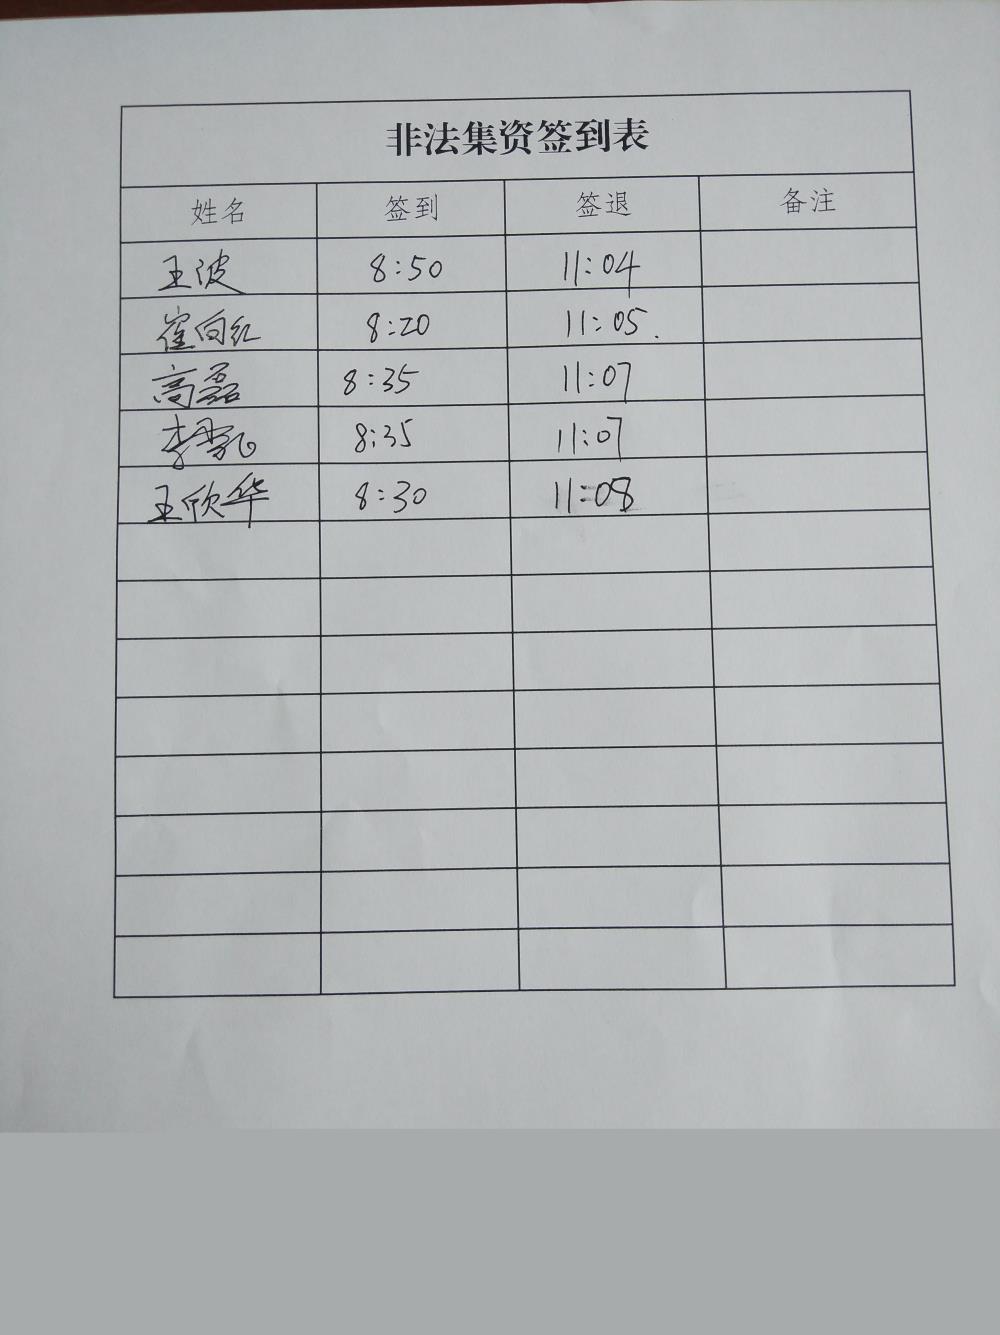 非法集资签到表
姓名 签到 签退 备注
王波 8:50 11:04
崔向红 8:20 11:05.
高磊 8:35 11:07
李 8:35 11:07
王欣华 8:30 11:08